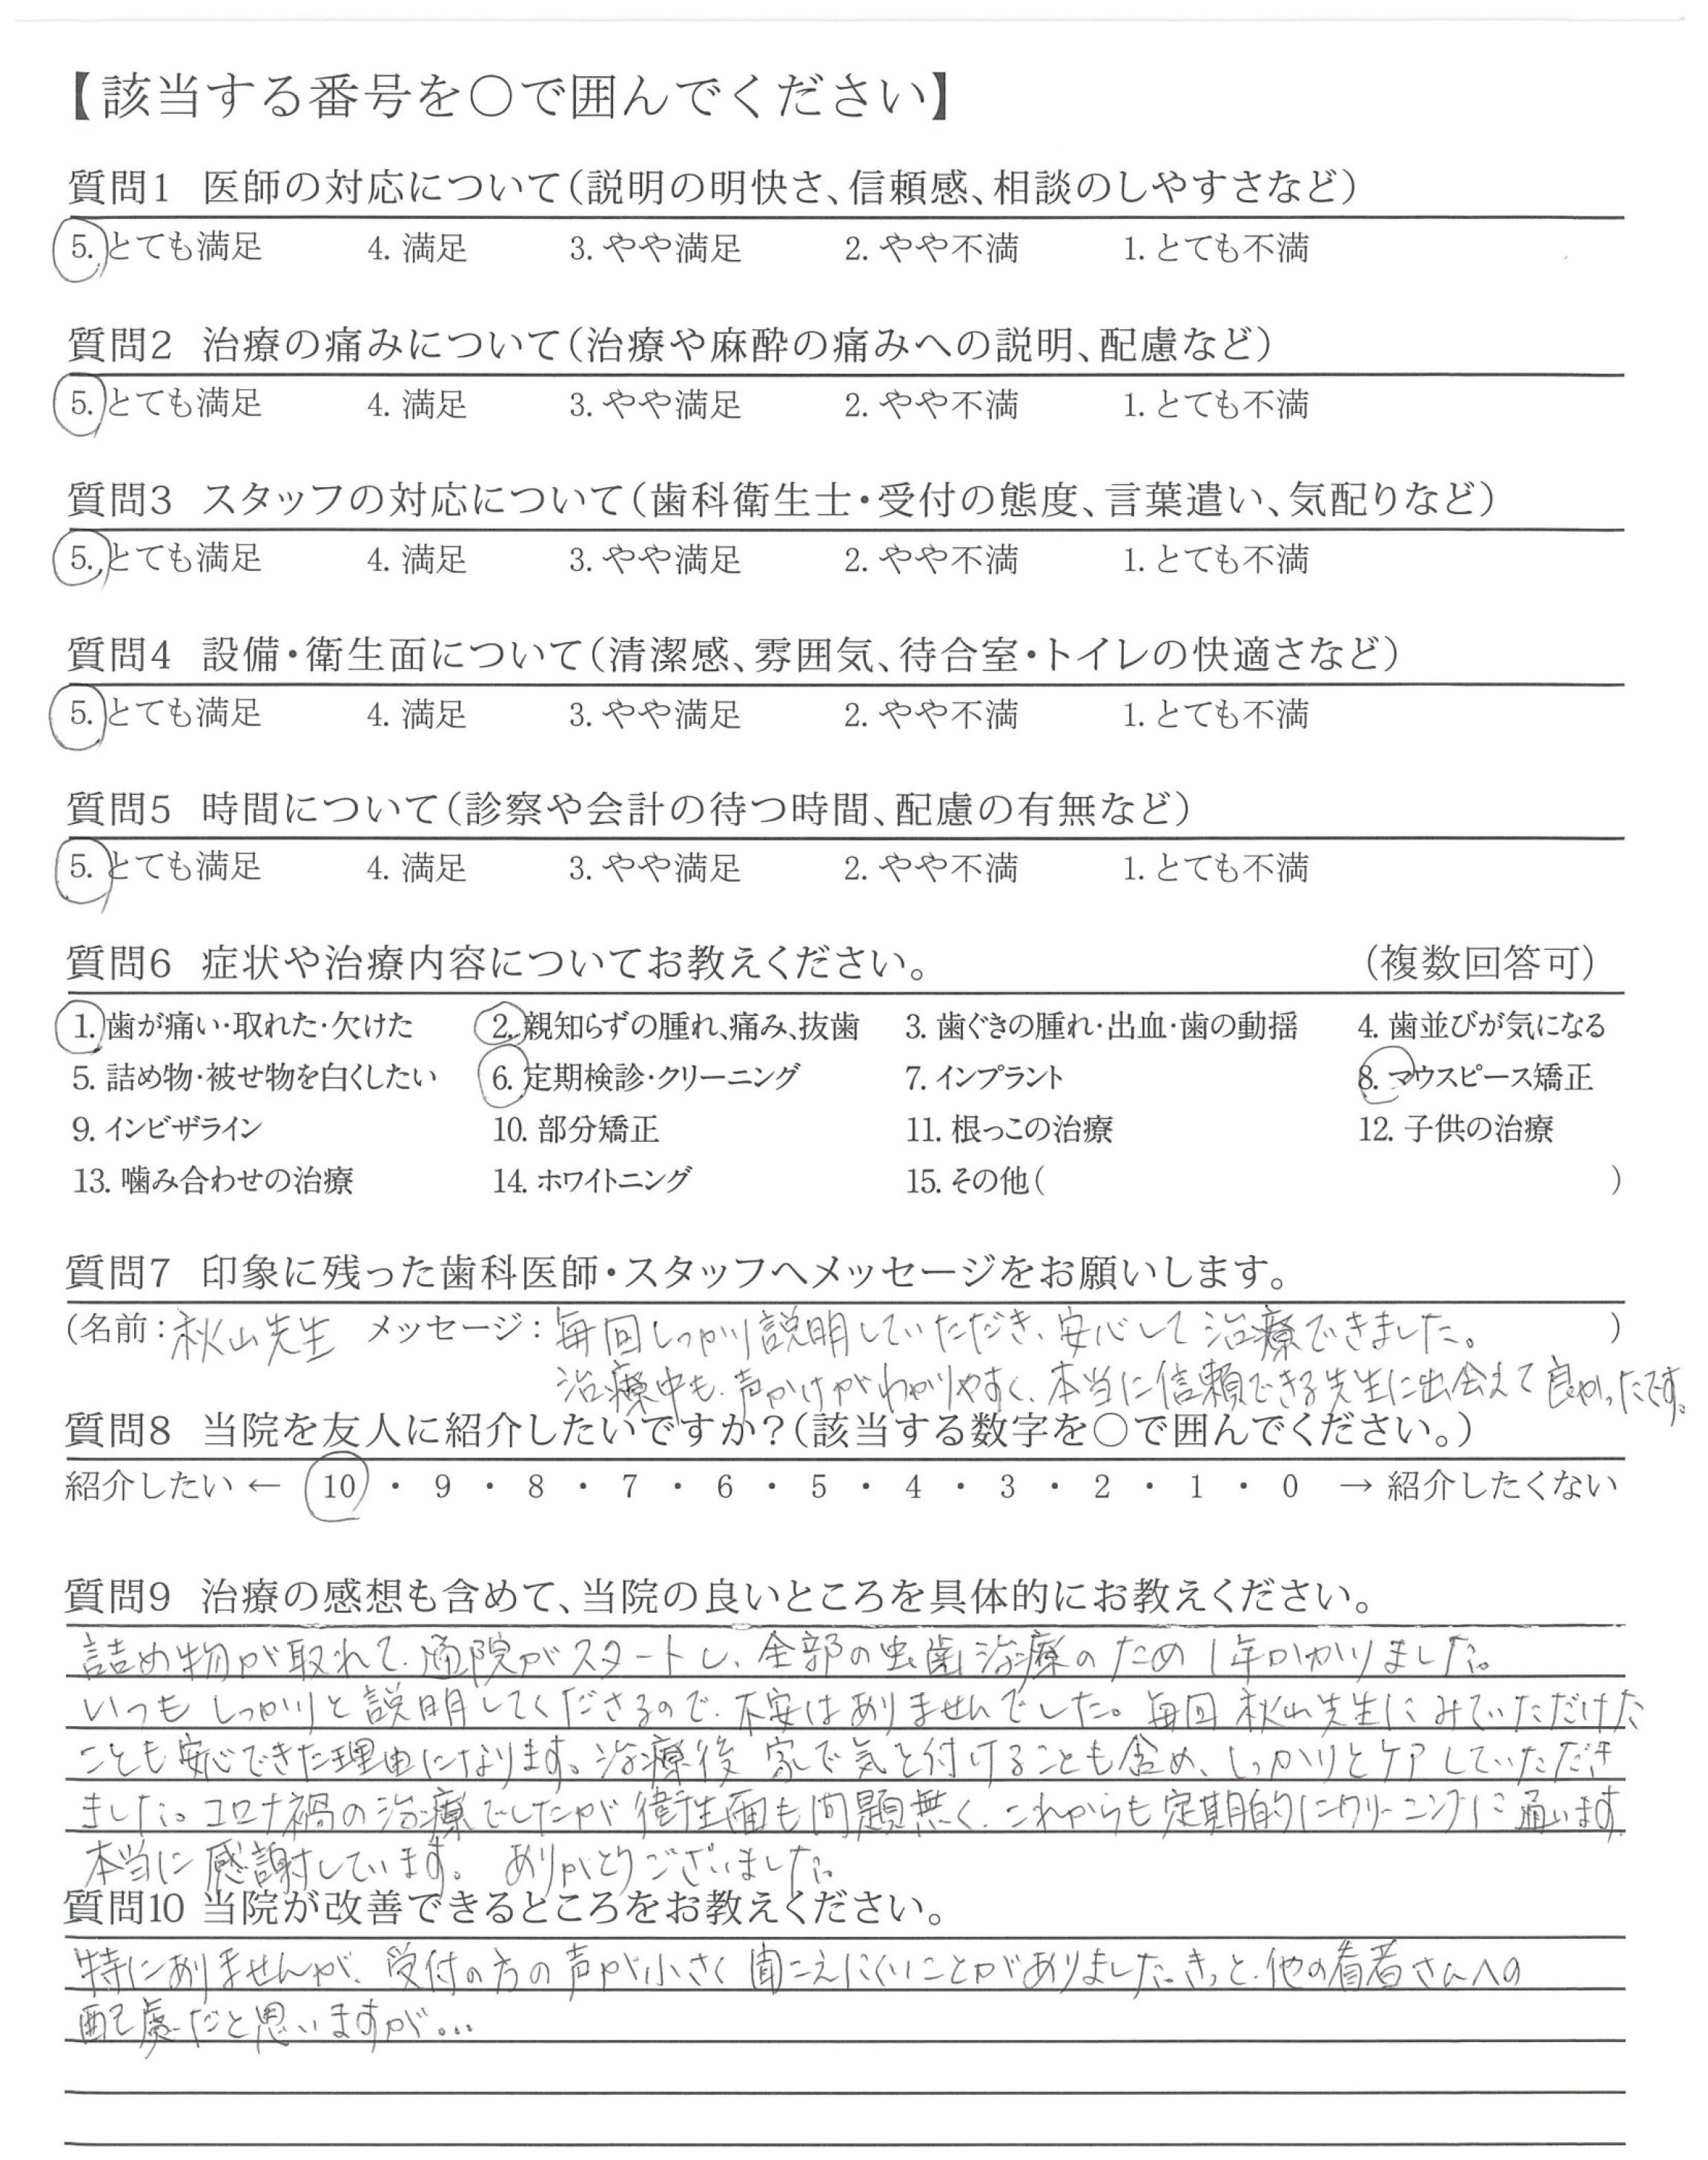 【該当する番号を○で囲んでください】
質問1 医師の対応について(説明の明快さ、信頼感、相談のしやすさなど)
5. とても満足 4. 満足 3. やや満足 2. やや不満 1. とても不満
質問2 治療の痛みについて(治療や麻酔の痛みへの説明、配慮など)
5. とても満足 4. 満足 3. やや満足 2. やや不満 1. とても不満
質問3 スタッフの対応について(歯科衛生士・受付の態度、言葉遣い、気配りなど)
5. とても満足 4. 満足 3. やや満足 2. やや不満 1. とても不満
質問4 設備・衛生面について(清潔感、雰囲気、待合室・トイレの快適さなど)
5. とても満足 4. 満足 3. やや満足 2. やや不満 1. とても不満
質問5 時間について(診察や会計の待つ時間、配慮の有無など)
5. とても満足 4. 満足 3. やや満足 2. やや不満 1. とても不満
質問6 症状や治療内容についてお教えください。 (複数回答可)
1. 歯が痛い・取れた・欠けた 2. 親知らずの腫れ、痛み、抜歯 3. 歯ぐきの腫れ・出血・歯の動揺 4. 歯並びが気になる
5. 詰め物・被せ物を白くしたい 6. 定期検診・クリーニング 7. インプラント 8. マウスピース矯正
9. インビザライン 10. 部分矯正 11. 根っこの治療 12. 子供の治療
13. 噛み合わせの治療 14. ホワイトニング 15. その他( )
質問7 印象に残った歯科医師・スタッフへメッセージをお願いします。
(名前:秋山先生 メッセージ:毎回しっかり説明していただき、安心して治療できました。 )
治療中も、声かけがわかりやすく、本当に信頼できる先生に出会えて良かったです。
質問8 当院を友人に紹介したいですか?(該当する数字を○で囲んでください。)
紹介したい ← 10 ・ 9 ・ 8 ・ 7 ・ 6 ・ 5 ・ 4 ・ 3 ・ 2 ・ 1 ・ 0 → 紹介したくない
質問9 治療の感想も含めて、当院の良いところを具体的にお教えください。
詰め物が取れて、通院がスタートし、全部の虫歯治療のため1年かかりました。
いつもしっかりと説明してくださるので、不安はありませんでした。毎回秋山先生にみていただけた
ことも安心できた理由になります。治療後家で気を付けることも含め、しっかりとケアしていただき
ました。コロナ禍の治療でしたが衛生面も問題無く、これからも定期的にクリーニングに通います
本当に感謝しています。 ありがとうございました。
質問10 当院が改善できるところをお教えください。
特にありませんが、受付の方の声が小さく聞こえにくいことがありました。きっと、他の看者さんへの
配慮だと思いますが…